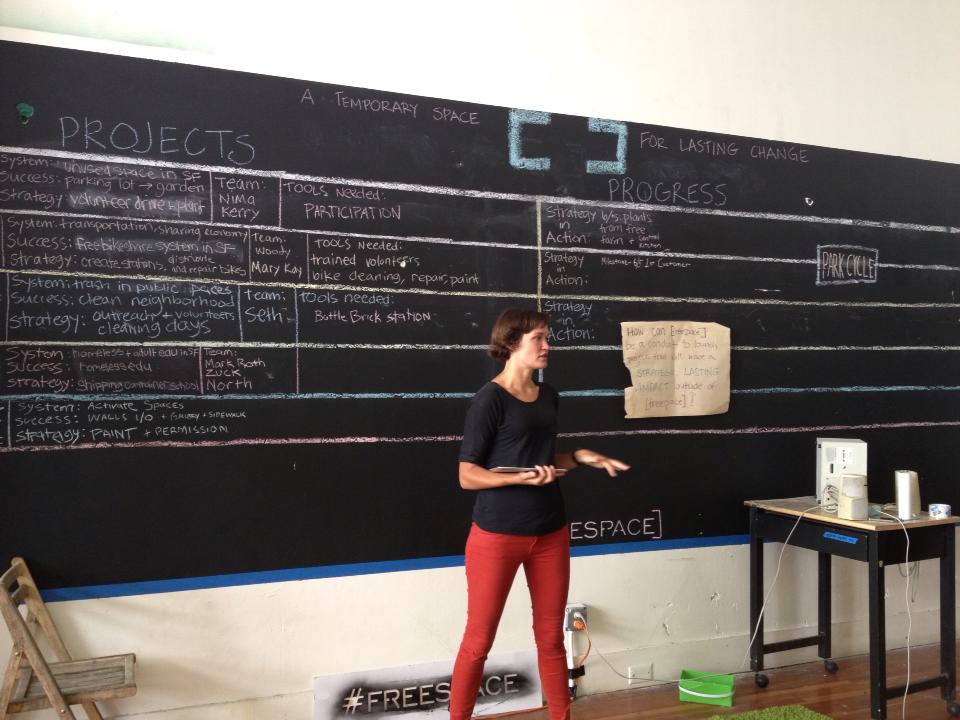 A TEMPORARY SPACE
FOR LASTING CHANGE
PROJECTS
PROGRESS
System: unused space in SF
Success: parking lot → garden
Strategy: volunteer drive + plant
Team:
Nima
Kerry
TOOLS Needed:
PARTICIPATION
Strategy b/s. plants
in from free
Action: farm +
Kitchen
System: transportation, sharing economy
Success: Free bike share system in SF
Strategy: create stations, distribute
and repair bikes
Team:
Woody
Mary Kay
TOOLS Needed:
trained volunteers
bike cleaning, repair, paint
Strategy
in
Action:
1st Customer
PARK CYCLE
System: trash in public places
Success: clean neighborhood
Strategy: outreach + volunteers
cleaning days
Team:
Seth
Tools needed:
Bottle Brick station
Strategy
in
Action:
System: homeless + adult edu in SF
Success: homeless edu
Strategy: shipping container school
Team:
Mark Roth
Zuck
North
System: Activate Spaces
Success: WALLS I/O + Gallery + SIDEWALK
Strategy: PAINT + PERMISSION
HOW CAN [freespace]
be a conduit to launch
projects that will have a
STRATEGIC LASTING
IMPACT outside of
[freespace]?
ESPACE]
#FREESPACE